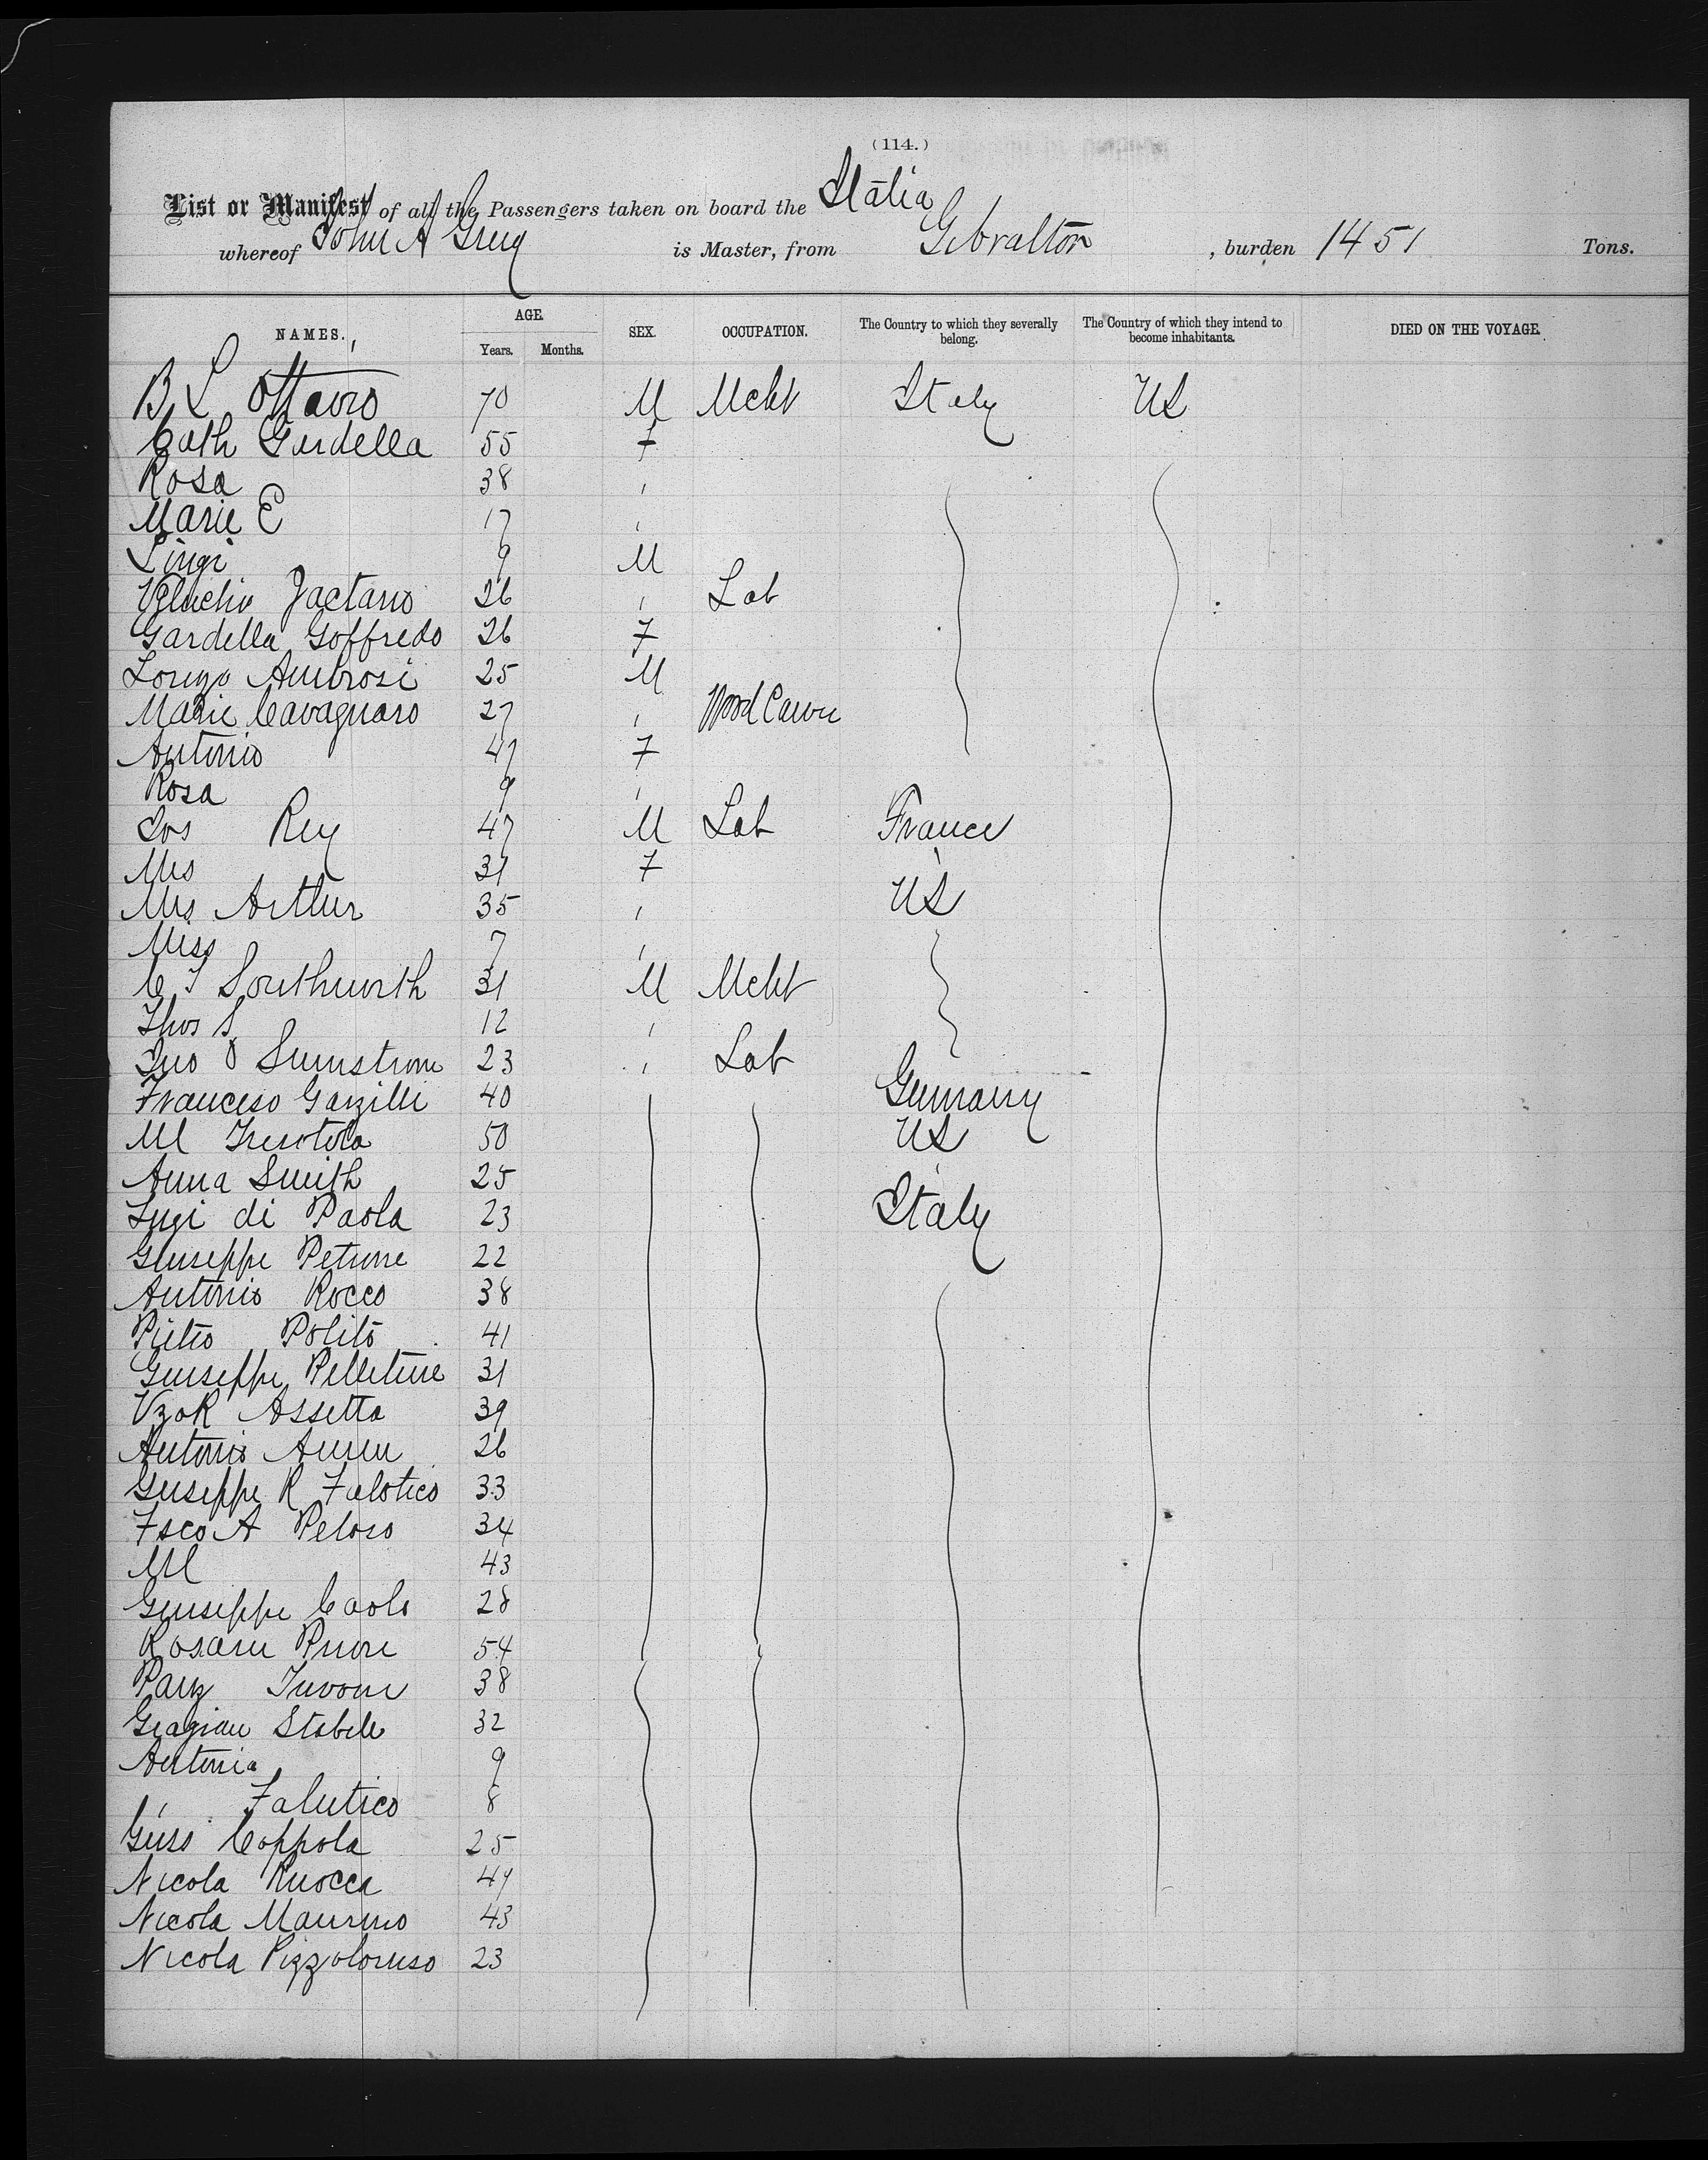 (114.)
List or Manifest of all the Passengers taken on board the Italia
whereof John A Greig is Master, from Gibraltar, burden 1451 Tons.
NAMES. AGE. SEX. OCCUPATION. The Country to which they severally belong. The Country of which they intend to become inhabitants. DIED ON THE VOYAGE.
Years. Months.
B L Ottavio 70 M Mcht Italy US
Cath Gardella 55 F
Rosa 38 "
Marie E 17 "
Luigi 9 M
Gaetano 26 " Lab
Gardella Goffredo 26 F
Lorenzo Ambrosi 25 M
Marie Cavagnaro 27 " Wood Carver
Antonio 47 F
Rosa 9 "
Jos Rey 47 M Lab France
Mrs 31 F "
Mrs Arthur 35 " US
Miss 7 "
C T Southworth 31 M Mcht
Thos S 12 "
Jno O Sumstrom 23 " Lab Germany
Francesco Garzilli 40
M 50 US
Anna Smith 25 "
Lugi di Paola 23 Italy
Giuseppe Petrone 22
Antonio Rocco 38
Pietro Polito 41
Giuseppe Pelletiere 31
Assetta 39
Antonio 26
Giuseppe R Falotico 33
Fsco A Peloso 34
M 43
Giuseppe Caolo 28
Rosaru Priore 54
Iuvone 38
Grazian Stabile 32
Antonia 9
" Falutico 8
Guis Coppola 25
Nicola Ruocca 47
Nicola Maurino 43
Nicola Pizzoloruso 23